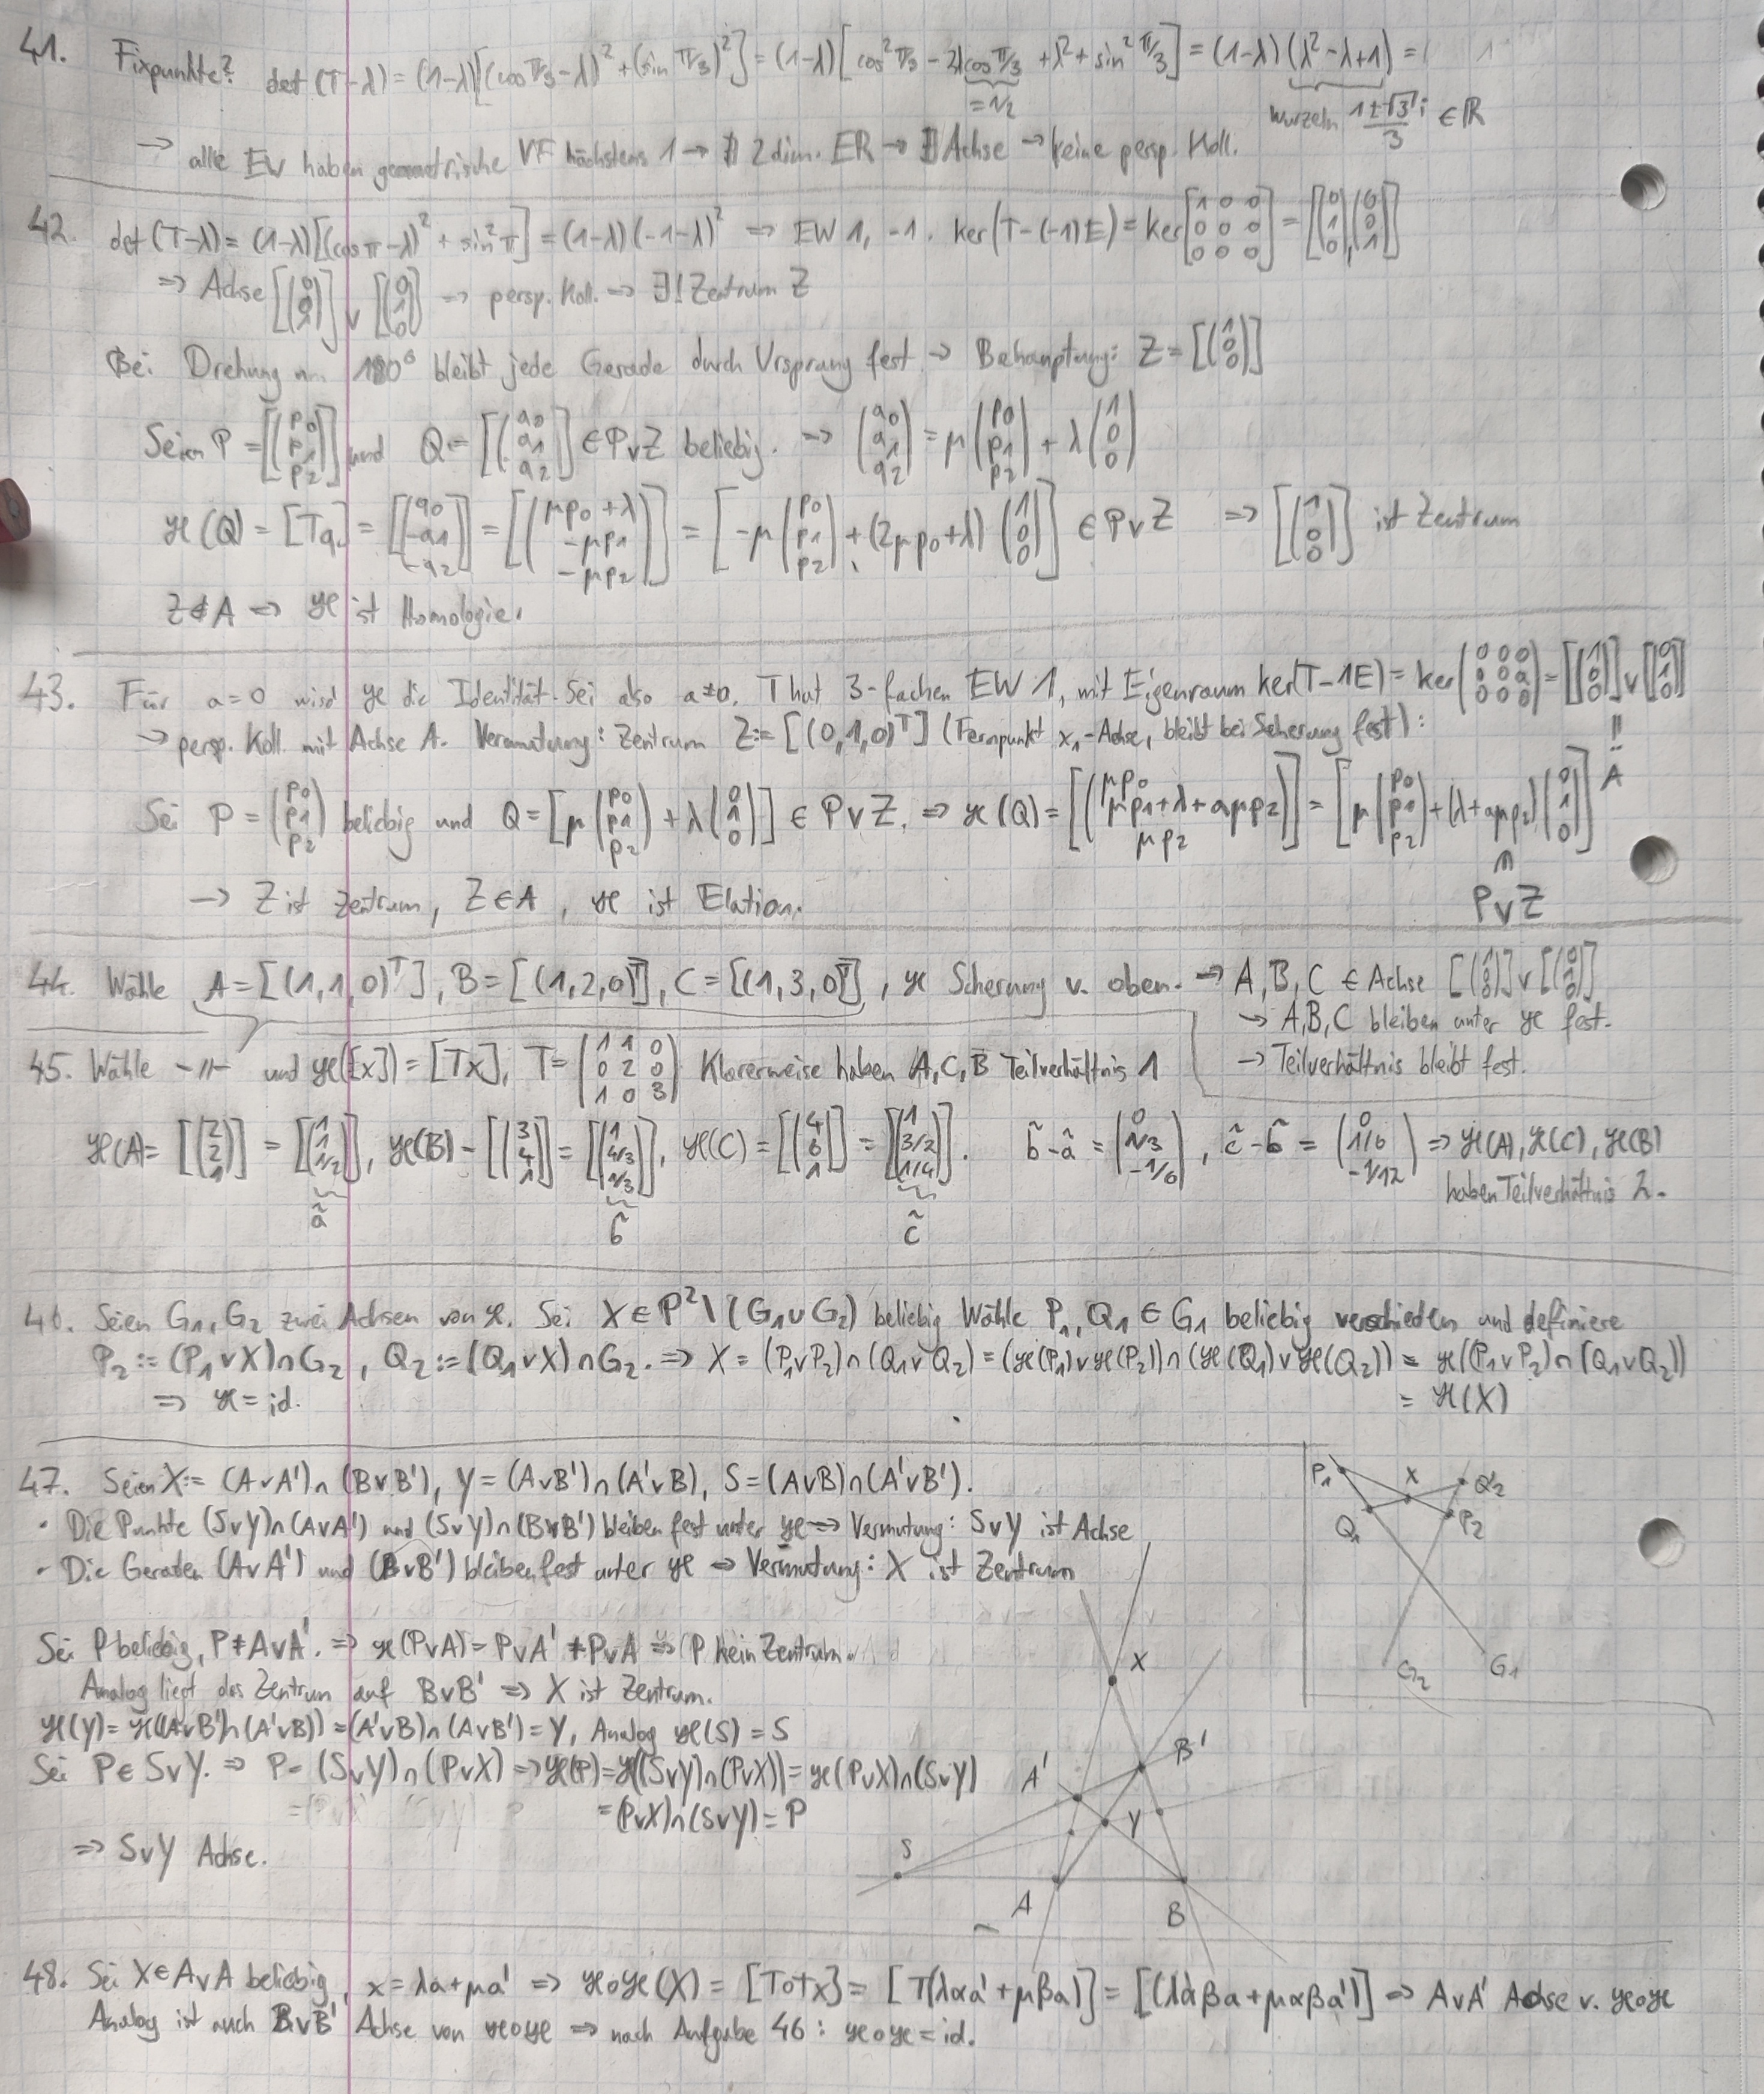 41. Fixpunkte? det(T-λ) = (1-λ)[(cos π/3 - λ)² + (sin π/3)²] = (1-λ)[cos² π/3 - 2λ cos π/3 + λ² + sin² π/3] = (1-λ)(λ²-λ+1) =
= 1/2
Wurzeln (1±√3 i)/3 ∈ ℝ
→ alle EW haben geometrische VF höchstens 1 → ∄ 2 dim. ER → ∄ Achse → keine persp. Koll.
42. det(T-λ) = (1-λ)[(cos π - λ)² + sin² π] = (1-λ)(-1-λ)² ⇒ EW 1, -1. ker(T-(-1)E) = ker[1 0 0; 0 0 0; 0 0 0] = [(0 1 0), (0 0 1)]
⇒ Achse [(0 0 1)] ∨ [(0 1 0)] ⇒ persp. Koll. ⇒ ∃! Zentrum Z
Bei Drehung 180° bleibt jede Gerade durch Ursprung fest → Behauptung: Z = [(1 0 0)]
Seien P = [(p0 p1 p2)] und Q = [(q0 q1 q2)] ∈ P∨Z beliebig. ⇒ (q0 q1 q2) = μ(p0 p1 p2) + λ(1 0 0)
ϰ(Q) = [Tq] = [(q0 -q1 -q2)] = [(μp0+λ -μp1 -μp2)] = [-μ(p0 p1 p2) + (2μp0+λ)(1 0 0)] ∈ P∨Z ⇒ [(1 0 0)] ist Zentrum
Z∉A ⇒ ϰ ist Homologie.
43. Für a=0 wird ϰ die Identität. Sei also a≠0. T hat 3-fachen EW 1, mit Eigenraum ker(T-1E) = ker(0 0 0; 0 0 a; 0 0 0) = [(1 0 0)] ∨ [(0 1 0)]
=: A
→ persp. Koll. mit Achse A. Vermutung: Zentrum Z := [(0,1,0)ᵀ] (Fernpunkt x₁-Achse, bleibt bei Scherung fest):
Sei P = (p0 p1 p2) beliebig und Q = [μ(p0 p1 p2) + λ(0 1 0)] ∈ P∨Z. ⇒ ϰ(Q) = [(μp0 μp1+λ+aμp2 μp2)] = [μ(p0 p1 p2) + (λ+aμp2)(0 1 0)]
∈ P∨Z
→ Z ist Zentrum, Z∈A, ϰ ist Elation.
44. Wähle A = [(1,1,0)ᵀ], B = [(1,2,0)ᵀ], C = [(1,3,0)ᵀ], ϰ Scherung v. oben. → A,B,C ∈ Achse [(1 0 0)] ∨ [(0 1 0)]
→ A,B,C bleiben unter ϰ fest.
→ Teilverhältnis bleibt fest.
45. Wähle -〃- und ϰ([x]) = [Tx], T = (1 1 0; 0 2 0; 1 0 3) Klarerweise haben A,C,B Teilverhältnis 1
ϰ(A) = [(2 2 1)] = [(1 1 1/2)], ϰ(B) = [(3 4 1)] = [(1 4/3 1/3)], ϰ(C) = [(4 6 1)] = [(1 3/2 1/4)]. b̃-ã = (0 1/3 -1/6), c̃-b̃ = (0 1/6 -1/12) ⇒ ϰ(A), ϰ(C), ϰ(B)
haben Teilverhältnis 2.
ã b̃ c̃
46. Seien G₁, G₂ zwei Achsen von ϰ. Sei X ∈ P² \ (G₁∪G₂) beliebig Wähle P₁, Q₁ ∈ G₁ beliebig verschieden und definiere
P₂ := (P₁∨X)∩G₂, Q₂ := (Q₁∨X)∩G₂. ⇒ X = (P₁∨P₂)∩(Q₁∨Q₂) = (ϰ(P₁)∨ϰ(P₂))∩(ϰ(Q₁)∨ϰ(Q₂)) = ϰ((P₁∨P₂)∩(Q₁∨Q₂))
⇒ ϰ = id.
= ϰ(X)
P₁ X Q₂
Q₁ P₂
G₂ G₁
47. Seien X := (A∨A')∩(B∨B'), Y = (A∨B')∩(A'∨B), S = (A∨B)∩(A'∨B').
• Die Punkte (S∨Y)∩(A∨A') und (S∨Y)∩(B∨B') bleiben fest unter ϰ ⇒ Vermutung: S∨Y ist Achse
• Die Geraten (A∨A') und (B∨B') bleiben fest unter ϰ ⇒ Vermutung: X ist Zentrum
Sei P beliebig, P ≠ A∨A'. ⇒ ϰ(P∨A) = P∨A' ≠ P∨A ⇒ P kein Zentrum.
Analog liegt das Zentrum auf B∨B' ⇒ X ist Zentrum.
ϰ(Y) = ϰ((A∨B')∩(A'∨B)) = (A'∨B)∩(A∨B') = Y, Analog ϰ(S) = S
Sei P∈S∨Y. ⇒ P = (S∨Y)∩(P∨X) ⇒ ϰ(P) = ϰ((S∨Y)∩(P∨X)) = ϰ(P∨X)∩(S∨Y)
= (P∨X)∩(S∨Y) = P
⇒ S∨Y Achse.
X
A' B'
Y
S
A B
48. Sei X∈A∨A beliebig, x = λa+μa' ⇒ ϰ∘ϰ(X) = [T∘Tx] = [T(λαa'+μβa)] = [(λαβa+μαβa')] ⇒ A∨A' Achse v. ϰ∘ϰ
Analog ist auch B∨B' Achse von ϰ∘ϰ ⇒ nach Aufgabe 46: ϰ∘ϰ = id.